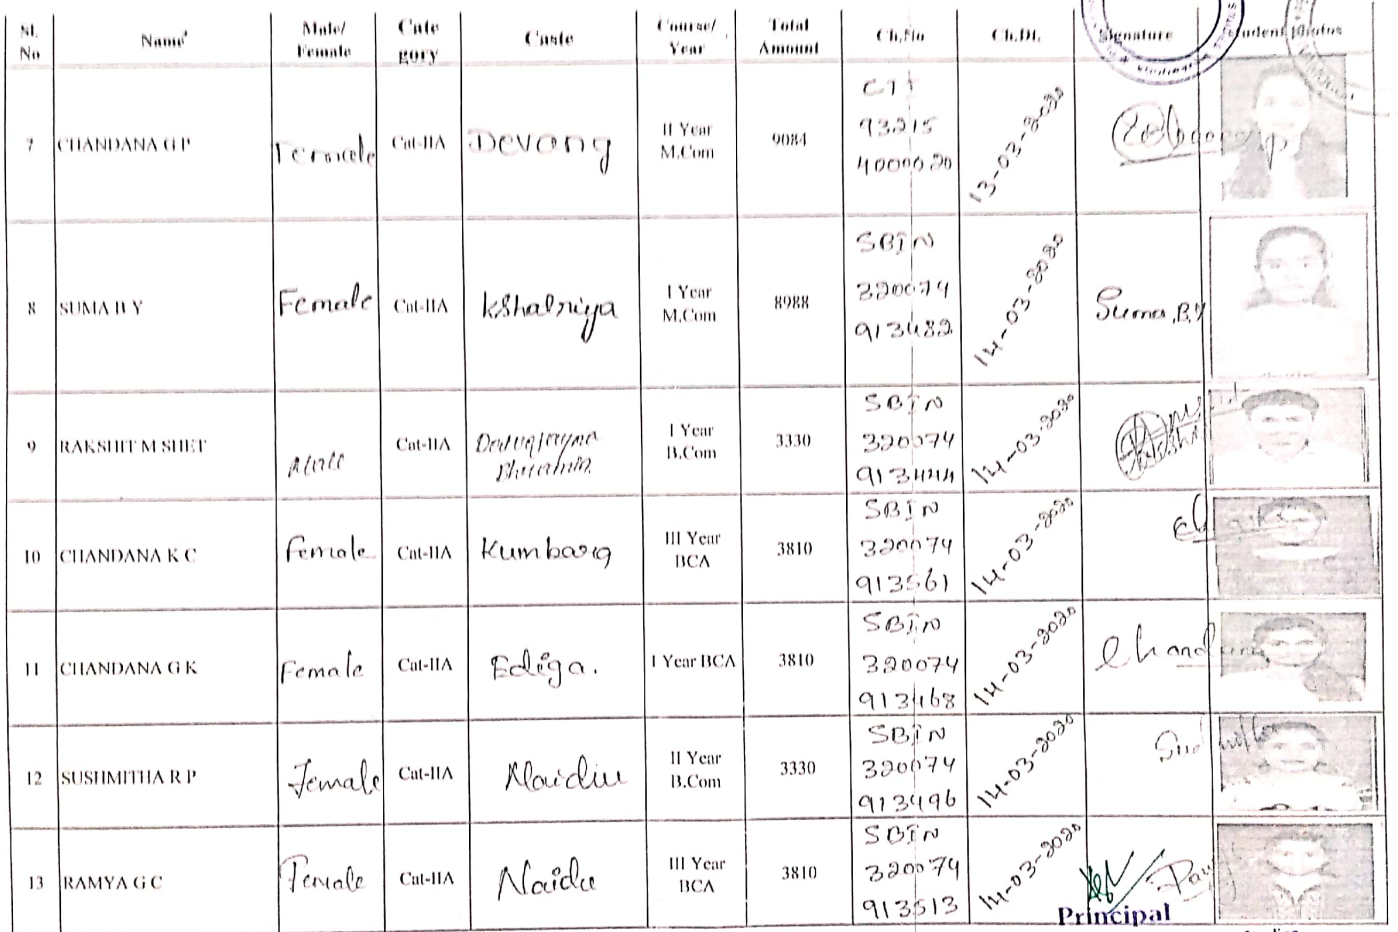 Sl. No Name Male/ Female Cate gory Caste Course/ Year Total Amount Ch.No Ch.Dt. Signature Student photos
7 CHANDANA G P Female Cat-IIA Devang II Year M.Com 9084 93215 13-03-2020
8 SUMA B Y Female Cat-IIA Kshatriya I Year M.Com 8988 SBIN 320074 913482 14-03-2020 Suma.B.Y
9 RAKSHIT M SHET Male Cat-IIA I Year B.Com 3330 SBIN 320074 913444 14-03-2020
10 CHANDANA K C Female Cat-IIA Kumbara III Year BCA 3810 SBIN 320074 913561 14-03-2020
11 CHANDANA G K Female Cat-IIA Ediga. I Year BCA 3810 SBIN 320074 913468 14-03-2020
12 SUSHMITHA R P Female Cat-IIA Naidu II Year B.Com 3330 SBIN 320074 913496 14-03-2020
13 RAMYA G C Female Cat-IIA Naidu III Year BCA 3810 SBIN 320074 913513 14-03-2020
Principal